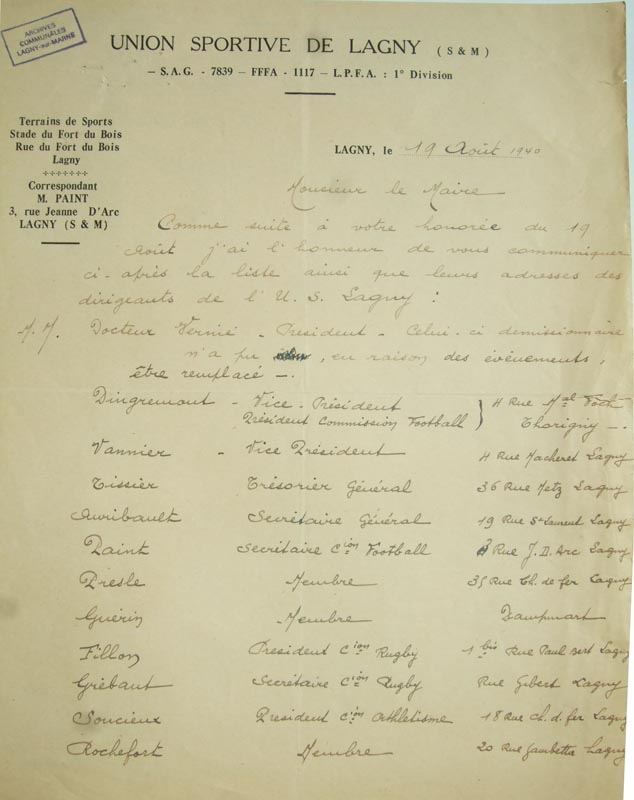 ARCHIVES
COMMUNALES
LAGNY-sur-MARNE
UNION SPORTIVE DE LAGNY (S & M)
— S.A.G. - 7839 — FFFA - 1117 — L.P.F.A. : 1° Division
Terrains de Sports
Stade du Fort du Bois
Rue du Fort du Bois
Lagny
Correspondant
M. PAINT
3, rue Jeanne D'Arc
LAGNY (S & M)
LAGNY, le 19 Août 1940
Monsieur le Maire
Comme suite à votre honorée du 19
Août j'ai l'honneur de vous communiquer
ci-après la liste ainsi que leurs adresses des
dirigeants de l'U. S. Lagny :
M. M. Docteur Vernié - President - Celui-ci demissionnaire
n'a pu , en raison des événements,
être remplacé —.
Dingremont - Vice-Président 4 Rue Mal Foch
Président Commission Football Thorigny —.
Vannier - Vice Président 4 Rue Macheret Lagny
Tissier Trésorier Général 36 Rue Metz Lagny
Auribault Secrétaire Général 19 Rue St Laurent Lagny
Paint Secrétaire Cion Football 3 Rue J. D. Arc Lagny
Presle Membre 35 Rue Ch. de fer Lagny
Guérin Membre Dampmart
Fillon President Cion Rugby 1 bis Rue Paul Bert Lagny
Grébaut Secrétaire Cion Rugby Rue Gibert Lagny
Soucieux President Cion Athlétisme 18 Rue Ch. d. fer Lagny
Rochefort Membre 20 Rue Gambetta Lagny